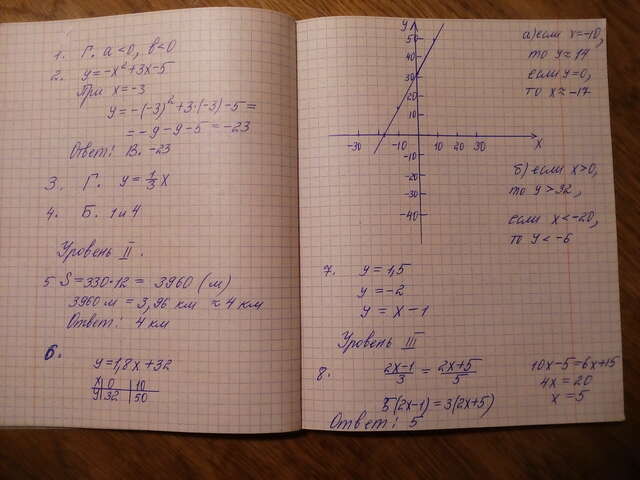 1. Г. a < 0, b < 0
2. y = -x² + 3x - 5
При x = -3
y = -(-3)² + 3·(-3) - 5 =
= -9 - 9 - 5 = -23
Ответ: В. -23
3. Г. y = 1/3 x
4. Б. 1 и 4
Уровень II.
5 S = 330·12 = 3960 (м)
3960 м = 3,96 км ≈ 4 км
Ответ: 4 км
6.
y = 1,8x + 32
x | 0 | 10
y | 32 | 50
y
50
40
30
20
10
-30 -10 10 20 30 x
-10
-20
-30
-40
а) если x = -10,
то y ≈ 14
если y = 0,
то x ≈ -17
б) если x > 0,
то y > 32,
если x < -20,
то y < -6
7. y = 1,5
y = -2
y = x - 1
Уровень III
8. (2x-1)/3 = (2x+5)/5
5(2x-1) = 3(2x+5)
10x - 5 = 6x + 15
4x = 20
x = 5
Ответ: 5